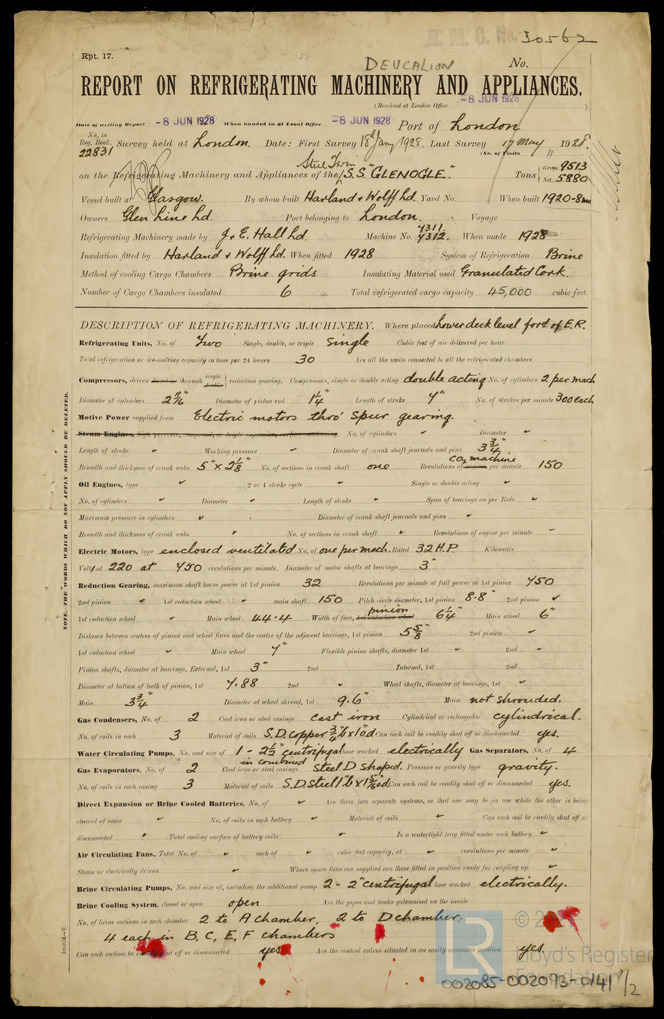 R.M.C. No. 30562
Rpt. 17.
DEUCALION No.
REPORT ON REFRIGERATING MACHINERY AND APPLIANCES.
(Received at London Office -8 JUN 1928
Date of writing Report -8 JUN 1928 When handed in at Local Office -8 JUN 1928 Port of London
No. in Reg. Book. 22831 Survey held at London. Date: First Survey 18th Jany 1928. Last Survey 17 May 1928.
(No. of Visits
on the Refrigerating Machinery and Appliances of the Steel Twin S.S. "GLENOGLE". Tons Gross 9513 Net 5880
Vessel built at Glasgow. By whom built Harland & Wolff Ld. Yard No. When built 1920-8mo
Owners Glen Line Ld. Port belonging to London. Voyage
Refrigerating Machinery made by J. & E. Hall Ld. Machine No. 7311 7312. When made 1928
Insulation fitted by Harland & Wolff Ld. When fitted 1928 System of Refrigeration Brine
Method of cooling Cargo Chambers Brine grids Insulating Material used Granulated Cork.
Number of Cargo Chambers insulated 6 Total refrigerated cargo capacity 45,000 cubic feet.
DESCRIPTION OF REFRIGERATING MACHINERY. Where placed Lower deck level ford of E.R.
Refrigerating Units, No. of Two Single, double, or triple Single Cubic feet of air delivered per hour
Total refrigeration or ice-melting capacity in tons per 24 hours 30 Are all the units connected to all the refrigerated chambers
Compressors, driven through single reduction gearing. Compressors, single or double acting double acting No. of cylinders 2 per mach
Diameter of cylinders 2 7/16" Diameter of piston rod 1 1/4" Length of stroke 7" No. of strokes per minute 300 each
Motive Power supplied from Electric motors thro' spur gearing.
Steam Engines, No. of cylinders " Diameter "
Length of stroke " Working pressure " Diameter of crank shaft journals and pins 3 3/4"
Breadth and thickness of crank webs 5" x 2 1/8" No. of sections in crank shaft one Revolutions of CO2 machine per minute 150
Oil Engines, type " 2 or 4 stroke cycle " Single or double acting "
No. of cylinders " Diameter " Length of stroke " Span of bearings as per Rule "
Maximum pressure in cylinders " Diameter of crank shaft journals and pins "
Breadth and thickness of crank webs " No. of sections in crank shaft " Revolutions of engine per minute
Electric Motors, type enclosed ventilated No. of one per mach. Rated 32 H.P. Kilowatts
Volts at 220 at 750 revolutions per minute. Diameter of motor shafts at bearings 3"
Reduction Gearing, maximum shaft horse power at 1st pinion 32 Revolutions per minute at full power at 1st pinion 750
2nd pinion " 1st reduction wheel " main shaft 150 Pitch circle diameter, 1st pinion 8.8" 2nd pinion "
1st reduction wheel " Main wheel 44.4 Width of face, pinion 6 1/4" Main wheel 6"
Distance between centres of pinion and wheel faces and the centre of the adjacent bearings, 1st pinion 5 5/8" 2nd pinion "
1st reduction wheel " Main wheel 7" Flexible pinion shafts, diameter 1st " 2nd "
Pinion shafts, diameter at bearings, External, 1st 3" 2nd Internal, 1st 2nd
Diameter at bottom of teeth of pinion, 1st 7.88 2nd " Wheel shafts, diameter at bearings, 1st "
Main 3 3/4" Diameter at wheel shroud, 1st 9.6" Main not shrouded.
Gas Condensers, No. of 2 Cast iron or steel casings cast iron Cylindrical or rectangular cylindrical.
No. of coils in each 3 Material of coils S.D. copper 3/4"b x 1"od Can each coil be readily shut off or disconnected yes.
Water Circulating Pumps, No. and size of 1 - 2 1/2" centrifugal how worked electrically Gas Separators, No. of 4
Gas Evaporators, No. of 2 in combined Cast iron or steel casings Steel D shaped. Pressure or gravity type gravity.
No. of coils in each casing 3 Material of coils S.D. Steel 1"b x 1 5/16"od Can each coil be readily shut off or disconnected yes.
Direct Expansion or Brine Cooled Batteries, No. of " Are there two separate systems, so that one may be in use while the other is being
cleared of snow " No. of coils in each battery " Material of coils " Can each coil be readily shut off or
disconnected " Total cooling surface of battery coils " Is a watertight tray fitted under each battery "
Air Circulating Fans, Total No. of " each of " cubic feet capacity, at " revolutions per minute "
Steam or electrically driven " Where spare fans are supplied are these fitted in position ready for coupling up "
Brine Circulating Pumps, No. and size of, including the additional pump 2 - 2" centrifugal how worked electrically.
Brine Cooling System, closed or open open Are the pipes and tanks galvanised on the inside
No. of brine sections in each chamber 2 to A chamber, 2 to D chamber.
4 each in B, C, E, F chambers
Can each section be readily shut off or disconnected yes. Are the control valves situated in an easily accessible position yes.
NOTE.—THE WORDS WHICH DO NOT APPLY SHOULD BE DELETED.
LR
Lloyd's Register
Foundation
002085-002093-0141 1/2